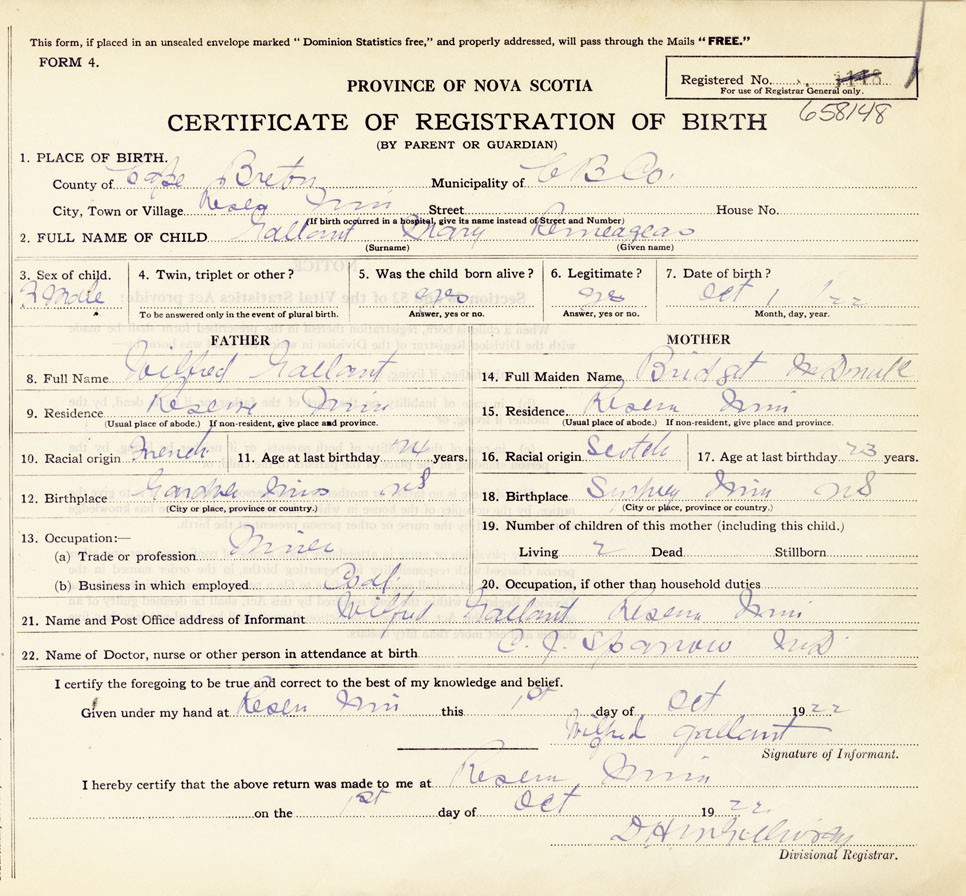 This form, if placed in an unsealed envelope marked "Dominion Statistics free," and properly addressed, will pass through the Mails "FREE."
FORM 4.
PROVINCE OF NOVA SCOTIA
Registered No.
For use of Registrar General only.
658148
CERTIFICATE OF REGISTRATION OF BIRTH
(BY PARENT OR GUARDIAN)
1. PLACE OF BIRTH.
County of Cape Breton Municipality of C B Co.
City, Town or Village Street House No.
(If birth occurred in a hospital, give its name instead of Street and Number)
2. FULL NAME OF CHILD Gallant Mary
(Surname) (Given name)
3. Sex of child. 4. Twin, triplet or other? 5. Was the child born alive? 6. Legitimate? 7. Date of birth?
Female yes yes Oct 1 / 22
To be answered only in the event of plural birth. Answer, yes or no. Answer, yes or no. Month, day, year.
FATHER MOTHER
8. Full Name Wilfred Gallant 14. Full Maiden Name Bridget
9. Residence Reserve 15. Residence.
(Usual place of abode.) If non-resident, give place and province. (Usual place of abode.) If non-resident, give place and province.
10. Racial origin French 11. Age at last birthday 24 years. 16. Racial origin Scotch 17. Age at last birthday 23 years.
12. Birthplace Gardner Mines NS 18. Birthplace Sydney NS
(City or place, province or country.) (City or place, province or country.)
13. Occupation:— 19. Number of children of this mother (including this child.)
(a) Trade or profession Miner Living 2 Dead Stillborn
(b) Business in which employed Coal 20. Occupation, if other than household duties
21. Name and Post Office address of Informant Wilfred Gallant
22. Name of Doctor, nurse or other person in attendance at birth C. J. Sparrow MD
I certify the foregoing to be true and correct to the best of my knowledge and belief.
Given under my hand at this 1st day of Oct 1922
Wilfred Gallant
Signature of Informant.
I hereby certify that the above return was made to me at
on the 1st day of Oct 1922
Divisional Registrar.